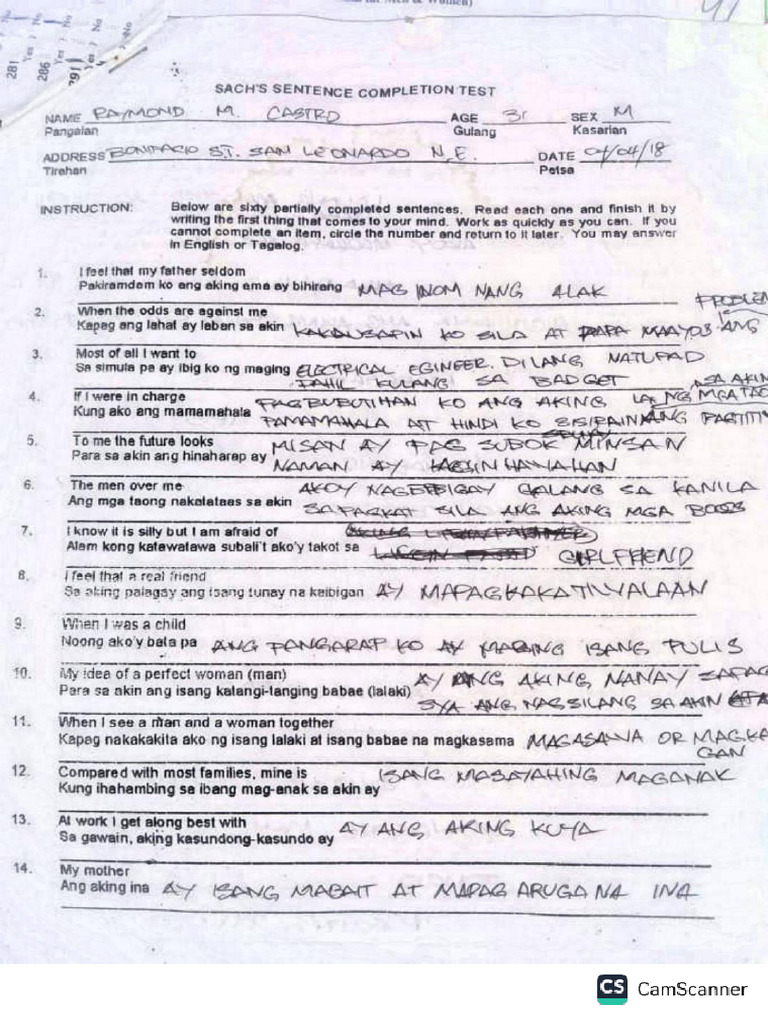 281
Yes ) No
286
Yes ) No
291
Yes ) No
SACH'S SENTENCE COMPLETION TEST
NAME RAYMOND M. CASTRO AGE 31 SEX M
Pangalan Gulang Kasarian
ADDRESS BONIFACIO ST. SAN LEONARDO N.E. DATE 04/04/18
Tirahan Petsa
INSTRUCTION: Below are sixty partially completed sentences. Read each one and finish it by
writing the first thing that comes to your mind. Work as quickly as you can. If you
cannot complete an item, circle the number and return to it later. You may answer
in English or Tagalog.
1. I feel that my father seldom
Pakiramdam ko ang aking ama ay bihirang MAG INOM NANG ALAK
PROBLEM
2. When the odds are against me
Kapag ang lahat ay laban sa akin KAKAUSAPIN KO SILA AT PAPA MAAYOS ANG
3. Most of all I want to
Sa simula pa ay ibig ko ng maging ELECTRICAL EGINEER. DI LANG NATUPAD
DAHIL KULANG SA BADGET
4. If I were in charge
Kung ako ang mamamahala PAGBUBUTIHAN KO ANG AKING
PAMAMAHALA AT HINDI KO SISIRAIN ANG
SA AKIN
NG MGA
5. To me the future looks MISAN AY PAG SUBOK MINSAN
Para sa akin ang hinaharap ay NAMAN AY
6. The men over me AKOY NAGBIBIGAY GALANG SA KANILA
Ang mga taong nakatataas sa akin SAPAGKAT SILA ANG AKING MGA BOSS
7. I know it is silly but I am afraid of
Alam kong katawatawa subali't ako'y takot sa GIRLFRIEND
8. I feel that a real friend
Sa aking palagay ang isang tunay na kaibigan AY MAPAGKAKATIWALAAN
9. When I was a child
Noong ako'y bata pa ANG PANGARAP KO AY MAGING ISANG PULIS
10. My idea of a perfect woman (man) AY ANG AKING NANAY SAPAG
Para sa akin ang isang katangi-tanging babae (lalaki) SYA ANG NAGSILANG SA AKIN
11. When I see a man and a woman together
Kapag nakakakita ako ng isang lalaki at isang babae na magkasama MAGASAWA OR MAGKA
GAN
12. Compared with most families, mine is ISANG MASAYAHING MAGANAK
Kung ihahambing sa ibang mag-anak sa akin ay
13. At work I get along best with
Sa gawain, aking kasundong-kasundo ay AY ANG AKING KUYA
14. My mother
Ang aking ina AY ISANG MABAIT AT MAPAG ARUGA NA INA
CS CamScanner